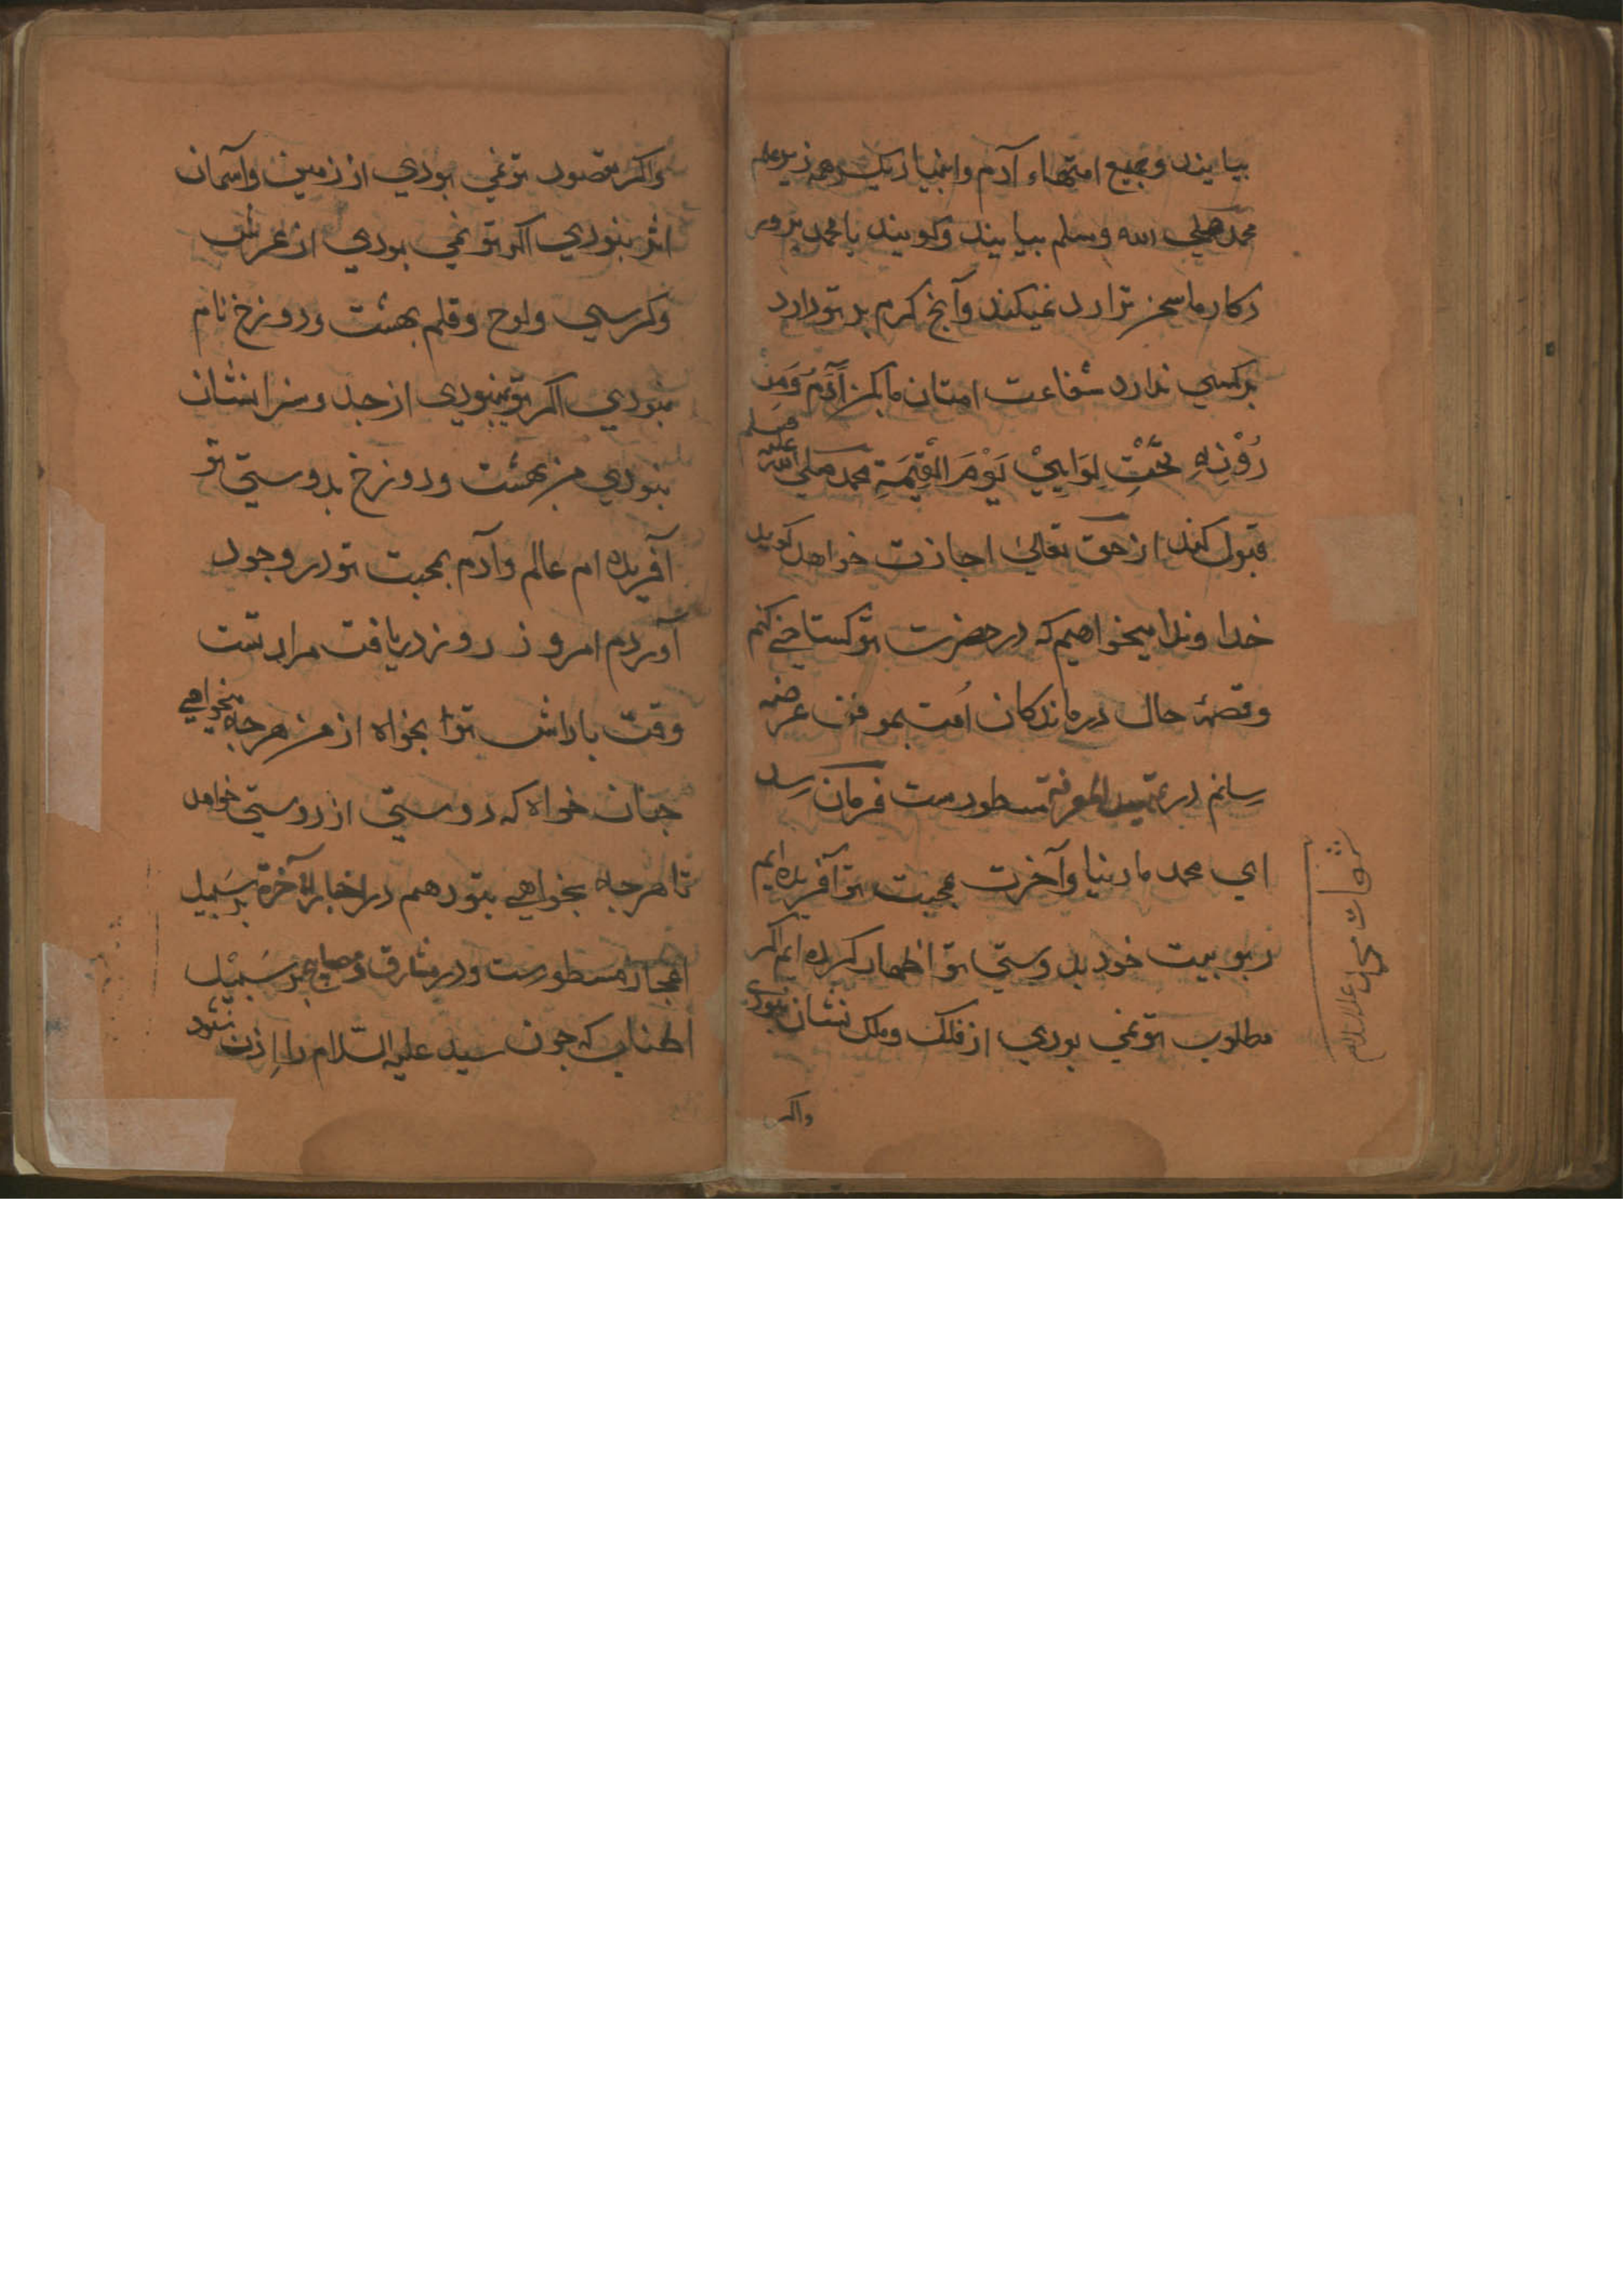 بیایند و جمیع امتهاء آدم وانبیا زیر علم
محمد صلی الله وسلم بیایند وکویند یا محمد
در کار ما سخن ترا رد نمیکند وآنچ کرم بر تو دارد
بر کسی ندارد شفاعت امتان ما بکن آدَمُ وَمَنْ
دُوْنِهِ تَحْتَ لِوَایِیْ یَوْمَ الْقِیٰمَةِ محمد صلی الله علیه وسلم
قبول کند از حق تعالی اجازت خواهد کوید
خداوندا میخواهم که در حضرت تو کستاخی کنم
وقصهٔ حال درماندکان اُمت بموقف عرضه
رسانم در تمهید المعرفة مسطورست فرمان رسد
ای محمد ما دنیا وآخرت بمحبت تو آفریده ایم
ربوبیت خود بدوستی تو اظهار کرده ایم اکر
مطلوب تو نمی بودی از فلک وملک نشان نبودی
واکر
شفاعت محمد علیه السلام
واکر مقصود تو نمی بودی از زمین وآسمان
اثر نبودی اکر تو نمی بودی از عرش
وکرسی ولوح وقلم بهشت ودوزخ نام
نبودی اکر تو نبودی از جد وسزا نشان
نبودی من بهشت ودوزخ بدوستی تو
آفریده ام عالم وآدم بمحبت تو در وجود
آوردم امروز روز دریافت مراد تست
وقت باداش ترا بخواه از من هرجه بخواهی
جنان خواه که دوستی از دوستی خواهد
تا هرجه بخواهی بتو دهم در اخبار الآخرة بر سبیل
اعجاز مسطورست ودر مشارق ومصابیح بر سَبِیْل
اطناب که جون سید علیه السّلام را اِذن شود